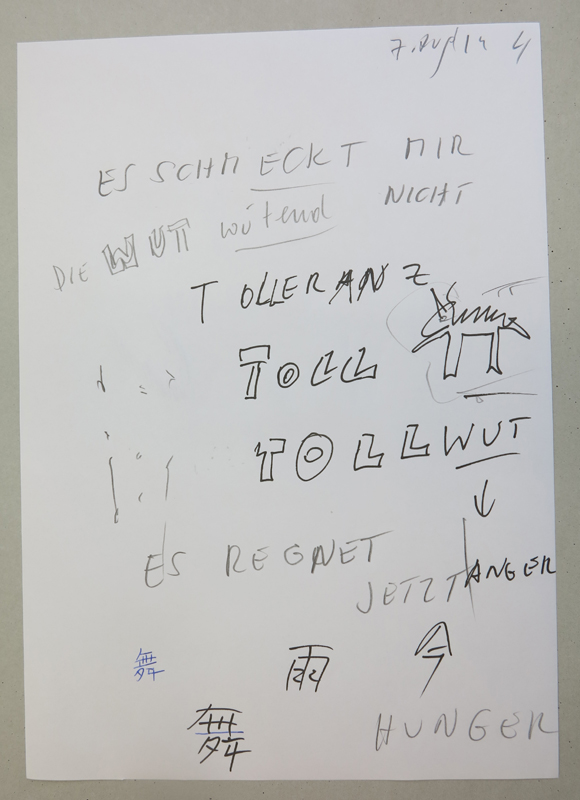 ES SCHMECKT MIR
NICHT
DIE WUT wütend
TOLLERANZ
TOLL
TOLLWUT
ES REGNET
JETZT ANGER
舞 雨 今
舞 HUNGER